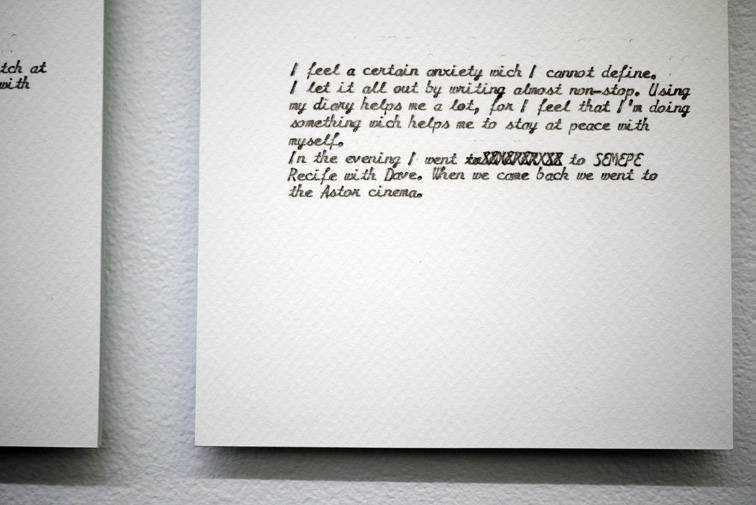 tch at
with
I feel a certain anxiety wich I cannot define.
I let it all out by writing almost non-stop. Using
my diary helps me a lot, for I feel that I'm doing
something wich helps me to stay at peace with
myself.
In the evening I went to SEMEPE
Recife with Dave. When we came back we went to
the Astor cinema.